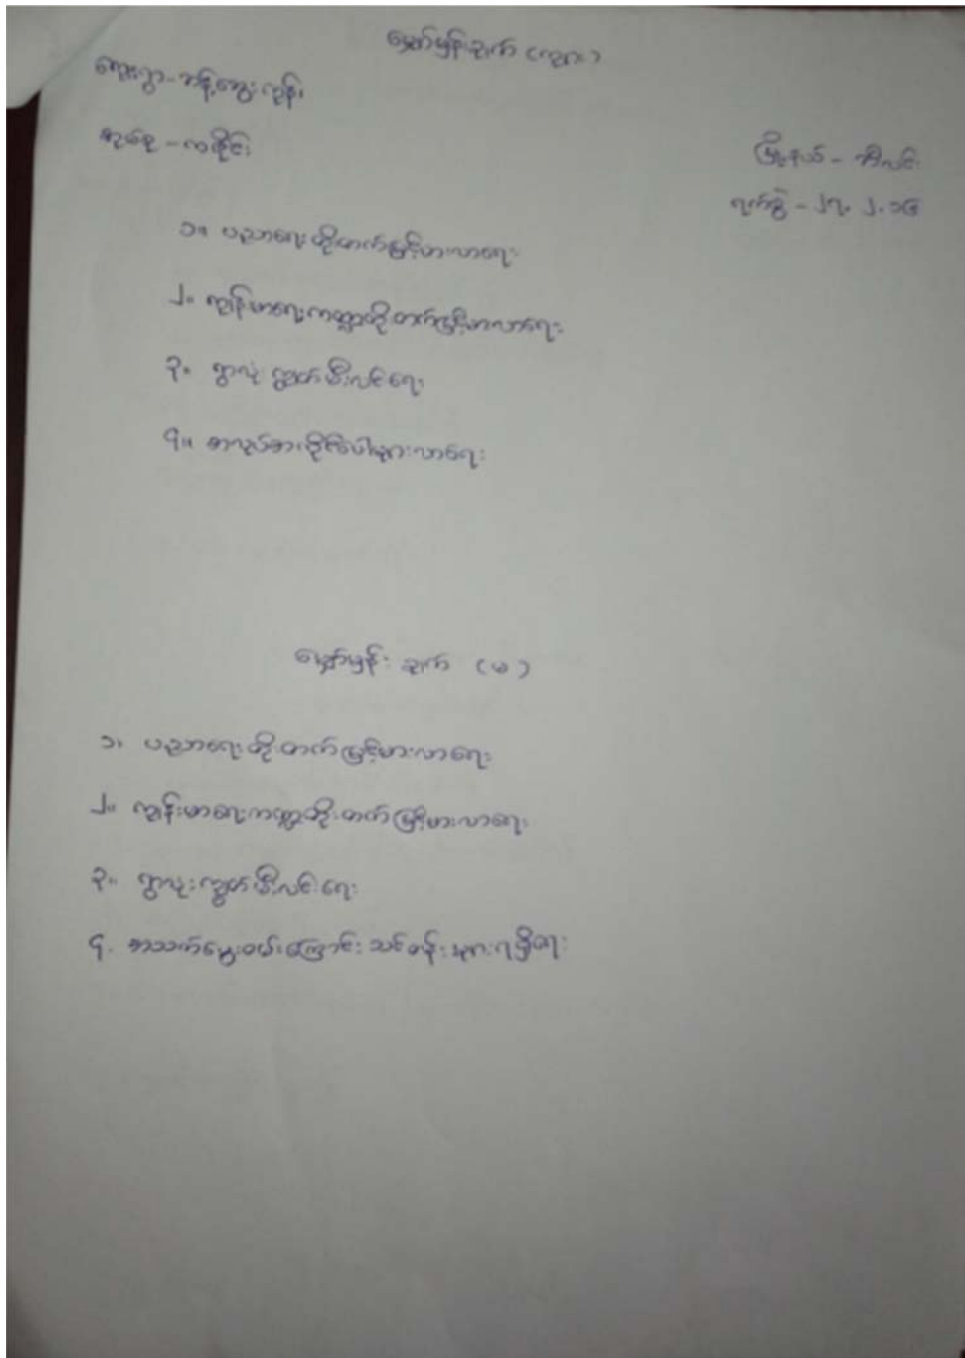 မျှော်မှန်းချက် (ကျား)
ကျေးရွာ-
အုပ်စု -
မြို့နယ် - ဘီးလင်း
ရက်စွဲ - ၂၇. ၂. ၁၆
၁။ ပညာရေးတိုးတက်မြင့်မားလာရေး
၂။ ကျန်းမာရေးကဏ္ဍတိုးတက်မြင့်မားလာရေး
၃။ ရွာလုံးကျွတ်မီးလင်းရေး
၄။ အလုပ်အကိုင်ပေါများလာရေး
မျှော်မှန်းချက် (မ)
၁. ပညာရေးတိုးတက်မြင့်မားလာရေး
၂။ ကျန်းမာရေးကဏ္ဍတိုးတက်မြင့်မားလာရေး
၃။ ရွာလုံးကျွတ်မီးလင်းရေး
၄. အသက်မွေးဝမ်းကြောင်းသင်တန်းများရရှိရေး